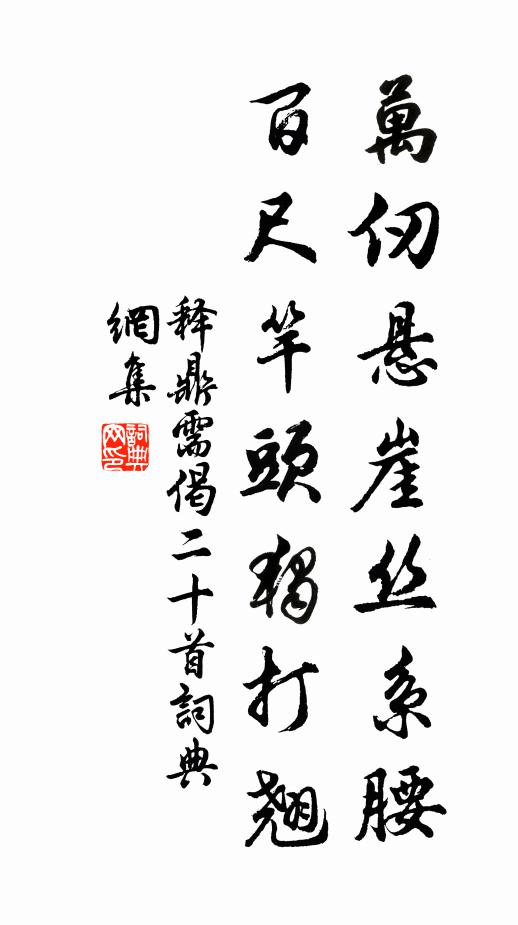 萬仞悬崖丝系腰
百尺竿頭獨打翹
释鼎需偈二十首詞典
網集
詞典
网印